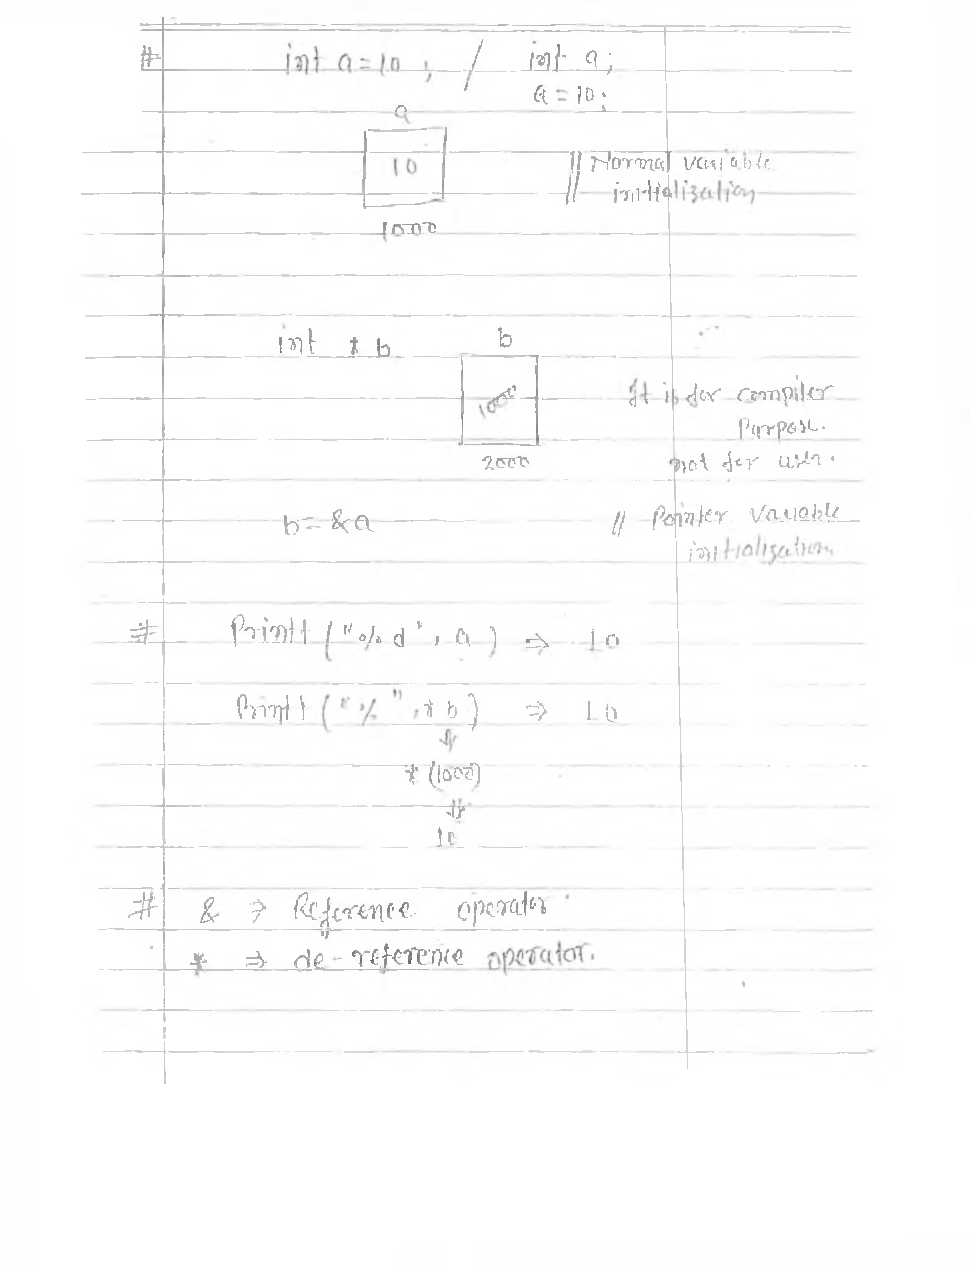 # int a = 10 ; / int a;
a = 10;
a
10
1000
// Normal variable
initialization
int * b
b
1000
2000
It is for compiler
Purpose.
not for user.
b = &a
// Pointer Variable
initialization.
# Printf ("%d", a) ⇒ 10
Printf ("%", * b) ⇒ 10
⇓
* (1000)
⇓
10
# & ⇒ Reference operator.
* ⇒ de-reference operator.